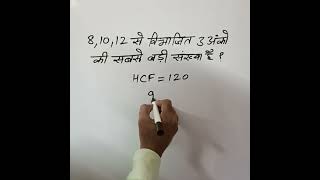 8,10,12 से विभाजित 3 अंको
की सबसे बड़ी संख्या है ?
HCF = 120
9